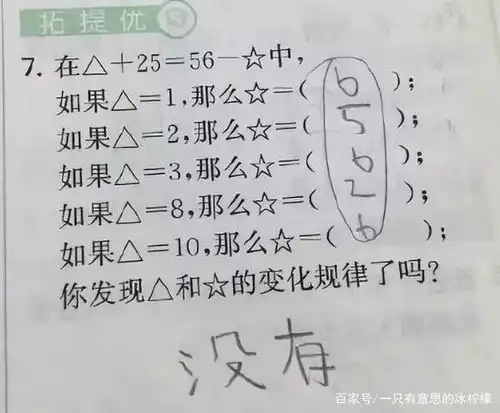 拓提优
7. 在△+25=56-☆中,
如果△=1,那么☆=( 6 );
如果△=2,那么☆=( 5 );
如果△=3,那么☆=( 6 );
如果△=8,那么☆=( 2 );
如果△=10,那么☆=( 6 );
你发现△和☆的变化规律了吗?
没有
百家号/一只有意思的冰柠檬